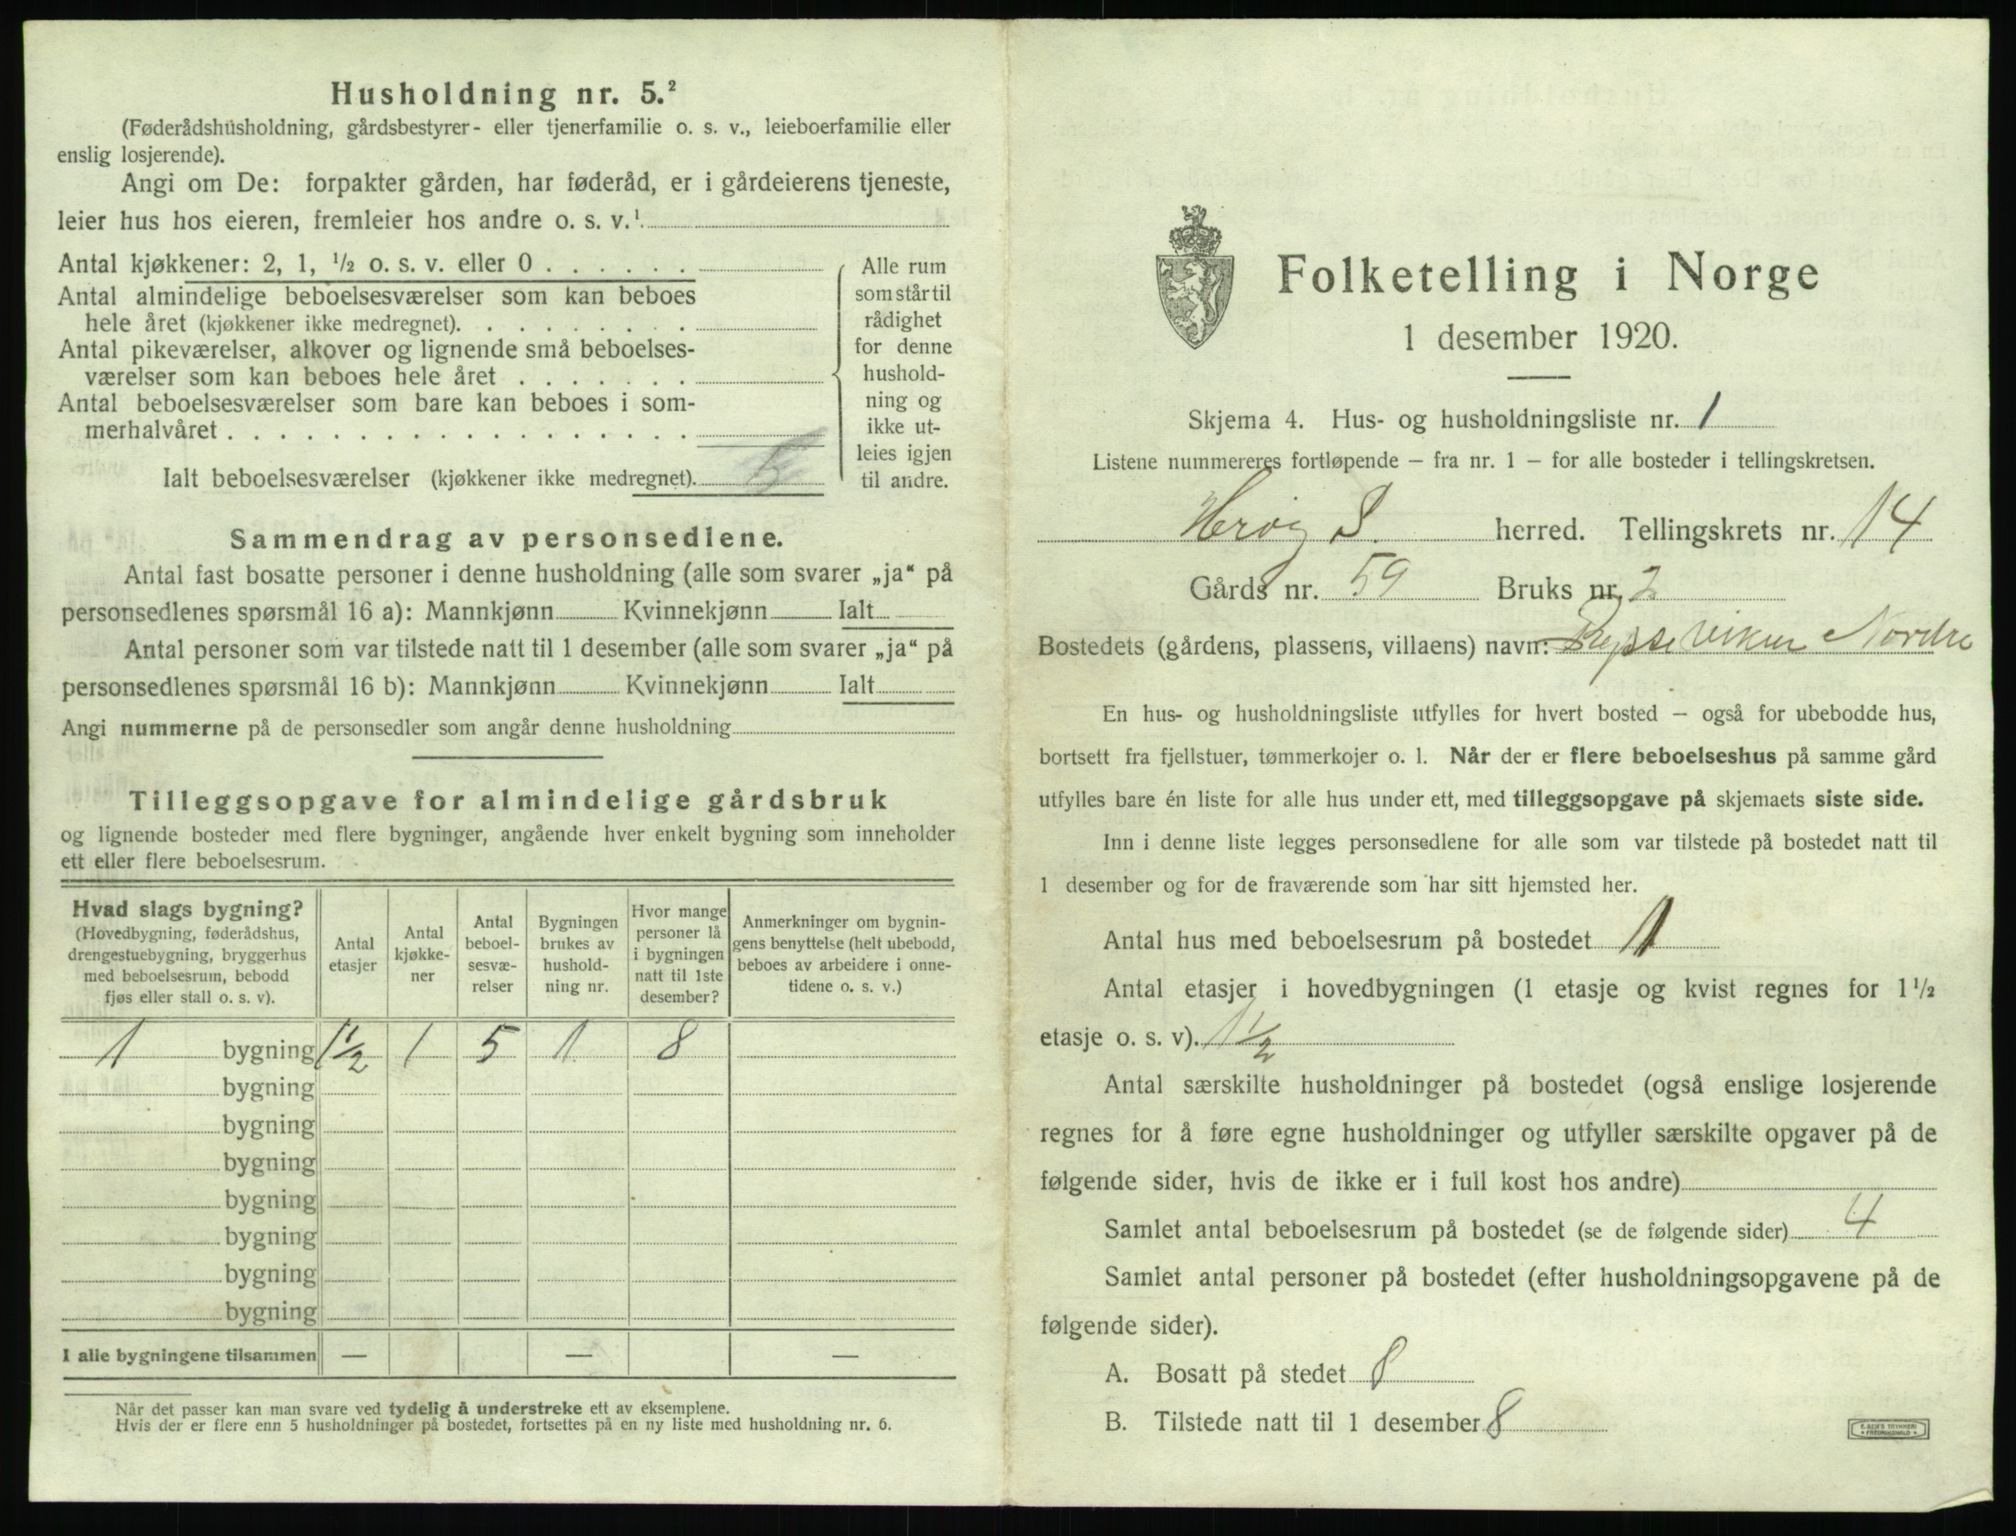 Husholdning nr. 5.²
(Føderådshusholdning, gårdsbestyrer- eller tjenerfamilie o. s. v., leieboerfamilie eller
enslig losjerende).
Angi om De: forpakter gården, har føderåd, er i gårdeierens tjeneste,
leier hus hos eieren, fremleier hos andre o. s. v.¹
Antal kjøkkener: 2, 1, ½ o. s. v. eller 0 . . . . . .
Antal almindelige beboelsesværelser som kan beboes
hele året (kjøkkener ikke medregnet). . . . . . . . .
Antal pikeværelser, alkover og lignende små beboelses-
værelser som kan beboes hele året . . . . . . .
Antal beboelsesværelser som bare kan beboes i som-
merhalvåret . . . . . . . . . . . . . . . . . .
Ialt beboelsesværelser (kjøkkener ikke medregnet).
Alle rum
som står til
rådighet
for denne
hushold-
ning og
ikke ut-
leies igjen
til andre.
Sammendrag av personsedlene.
Antal fast bosatte personer i denne husholdning (alle som svarer „ja“ på
personsedlenes spørsmål 16 a): Mannkjønn Kvinnekjønn Ialt
Antal personer som var tilstede natt til 1 desember (alle som svarer „ja“ på
personsedlenes spørsmål 16 b): Mannkjønn Kvinnekjønn Ialt
Angi nummerne på de personsedler som angår denne husholdning
Tilleggsopgave for almindelige gårdsbruk
og lignende bosteder med flere bygninger, angående hver enkelt bygning som inneholder
ett eller flere beboelsesrum.
Hvad slags bygning?
(Hovedbygning, føderådshus,
drengestuebygning, bryggerhus
med beboelsesrum, bebodd
fjøs eller stall o. s. v).
Antal
etasjer
Antal
kjøkke-
ner
Antal
beboel-
sesvæ-
relser
Bygningen
brukes av
hushold-
ning nr.
Hvor mange
personer lå
i bygningen
natt til 1ste
desember?
Anmerkninger om bygnin-
gens benyttelse (helt ubebodd,
beboes av arbeidere i onne-
tidene o. s. v.)
1 bygning 1½ 1 5 1 8
bygning
bygning
bygning
bygning
bygning
bygning
bygning
I alle bygningene tilsammen — — —
Når det passer kan man svare ved tydelig å understreke ett av eksemplene.
Hvis der er flere enn 5 husholdninger på bostedet, fortsettes på en ny liste med husholdning nr. 6.
Folketelling i Norge
1 desember 1920.
Skjema 4. Hus- og husholdningsliste nr. 1
Listene nummereres fortløpende – fra nr. 1 – for alle bosteder i tellingskretsen.
Herøy S. herred. Tellingskrets nr. 14
Gårds nr. 59 Bruks nr. 2
Bostedets (gårdens, plassens, villaens) navn: Nordre
En hus- og husholdningsliste utfylles for hvert bosted – også for ubebodde hus,
bortsett fra fjellstuer, tømmerkojer o. l. Når der er flere beboelseshus på samme gård
utfylles bare én liste for alle hus under ett, med tilleggsopgave på skjemaets siste side.
Inn i denne liste legges personsedlene for alle som var tilstede på bostedet natt til
1 desember og for de fraværende som har sitt hjemsted her.
Antal hus med beboelsesrum på bostedet 1
Antal etasjer i hovedbygningen (1 etasje og kvist regnes for 1½
etasje o. s. v). 1½
Antal særskilte husholdninger på bostedet (også enslige losjerende
regnes for å føre egne husholdninger og utfyller særskilte opgaver på de
følgende sider, hvis de ikke er i full kost hos andre)
Samlet antal beboelsesrum på bostedet (se de følgende sider) 4
Samlet antal personer på bostedet (efter husholdningsopgavene på de
følgende sider).
A. Bosatt på stedet 8
B. Tilstede natt til 1 desember 8